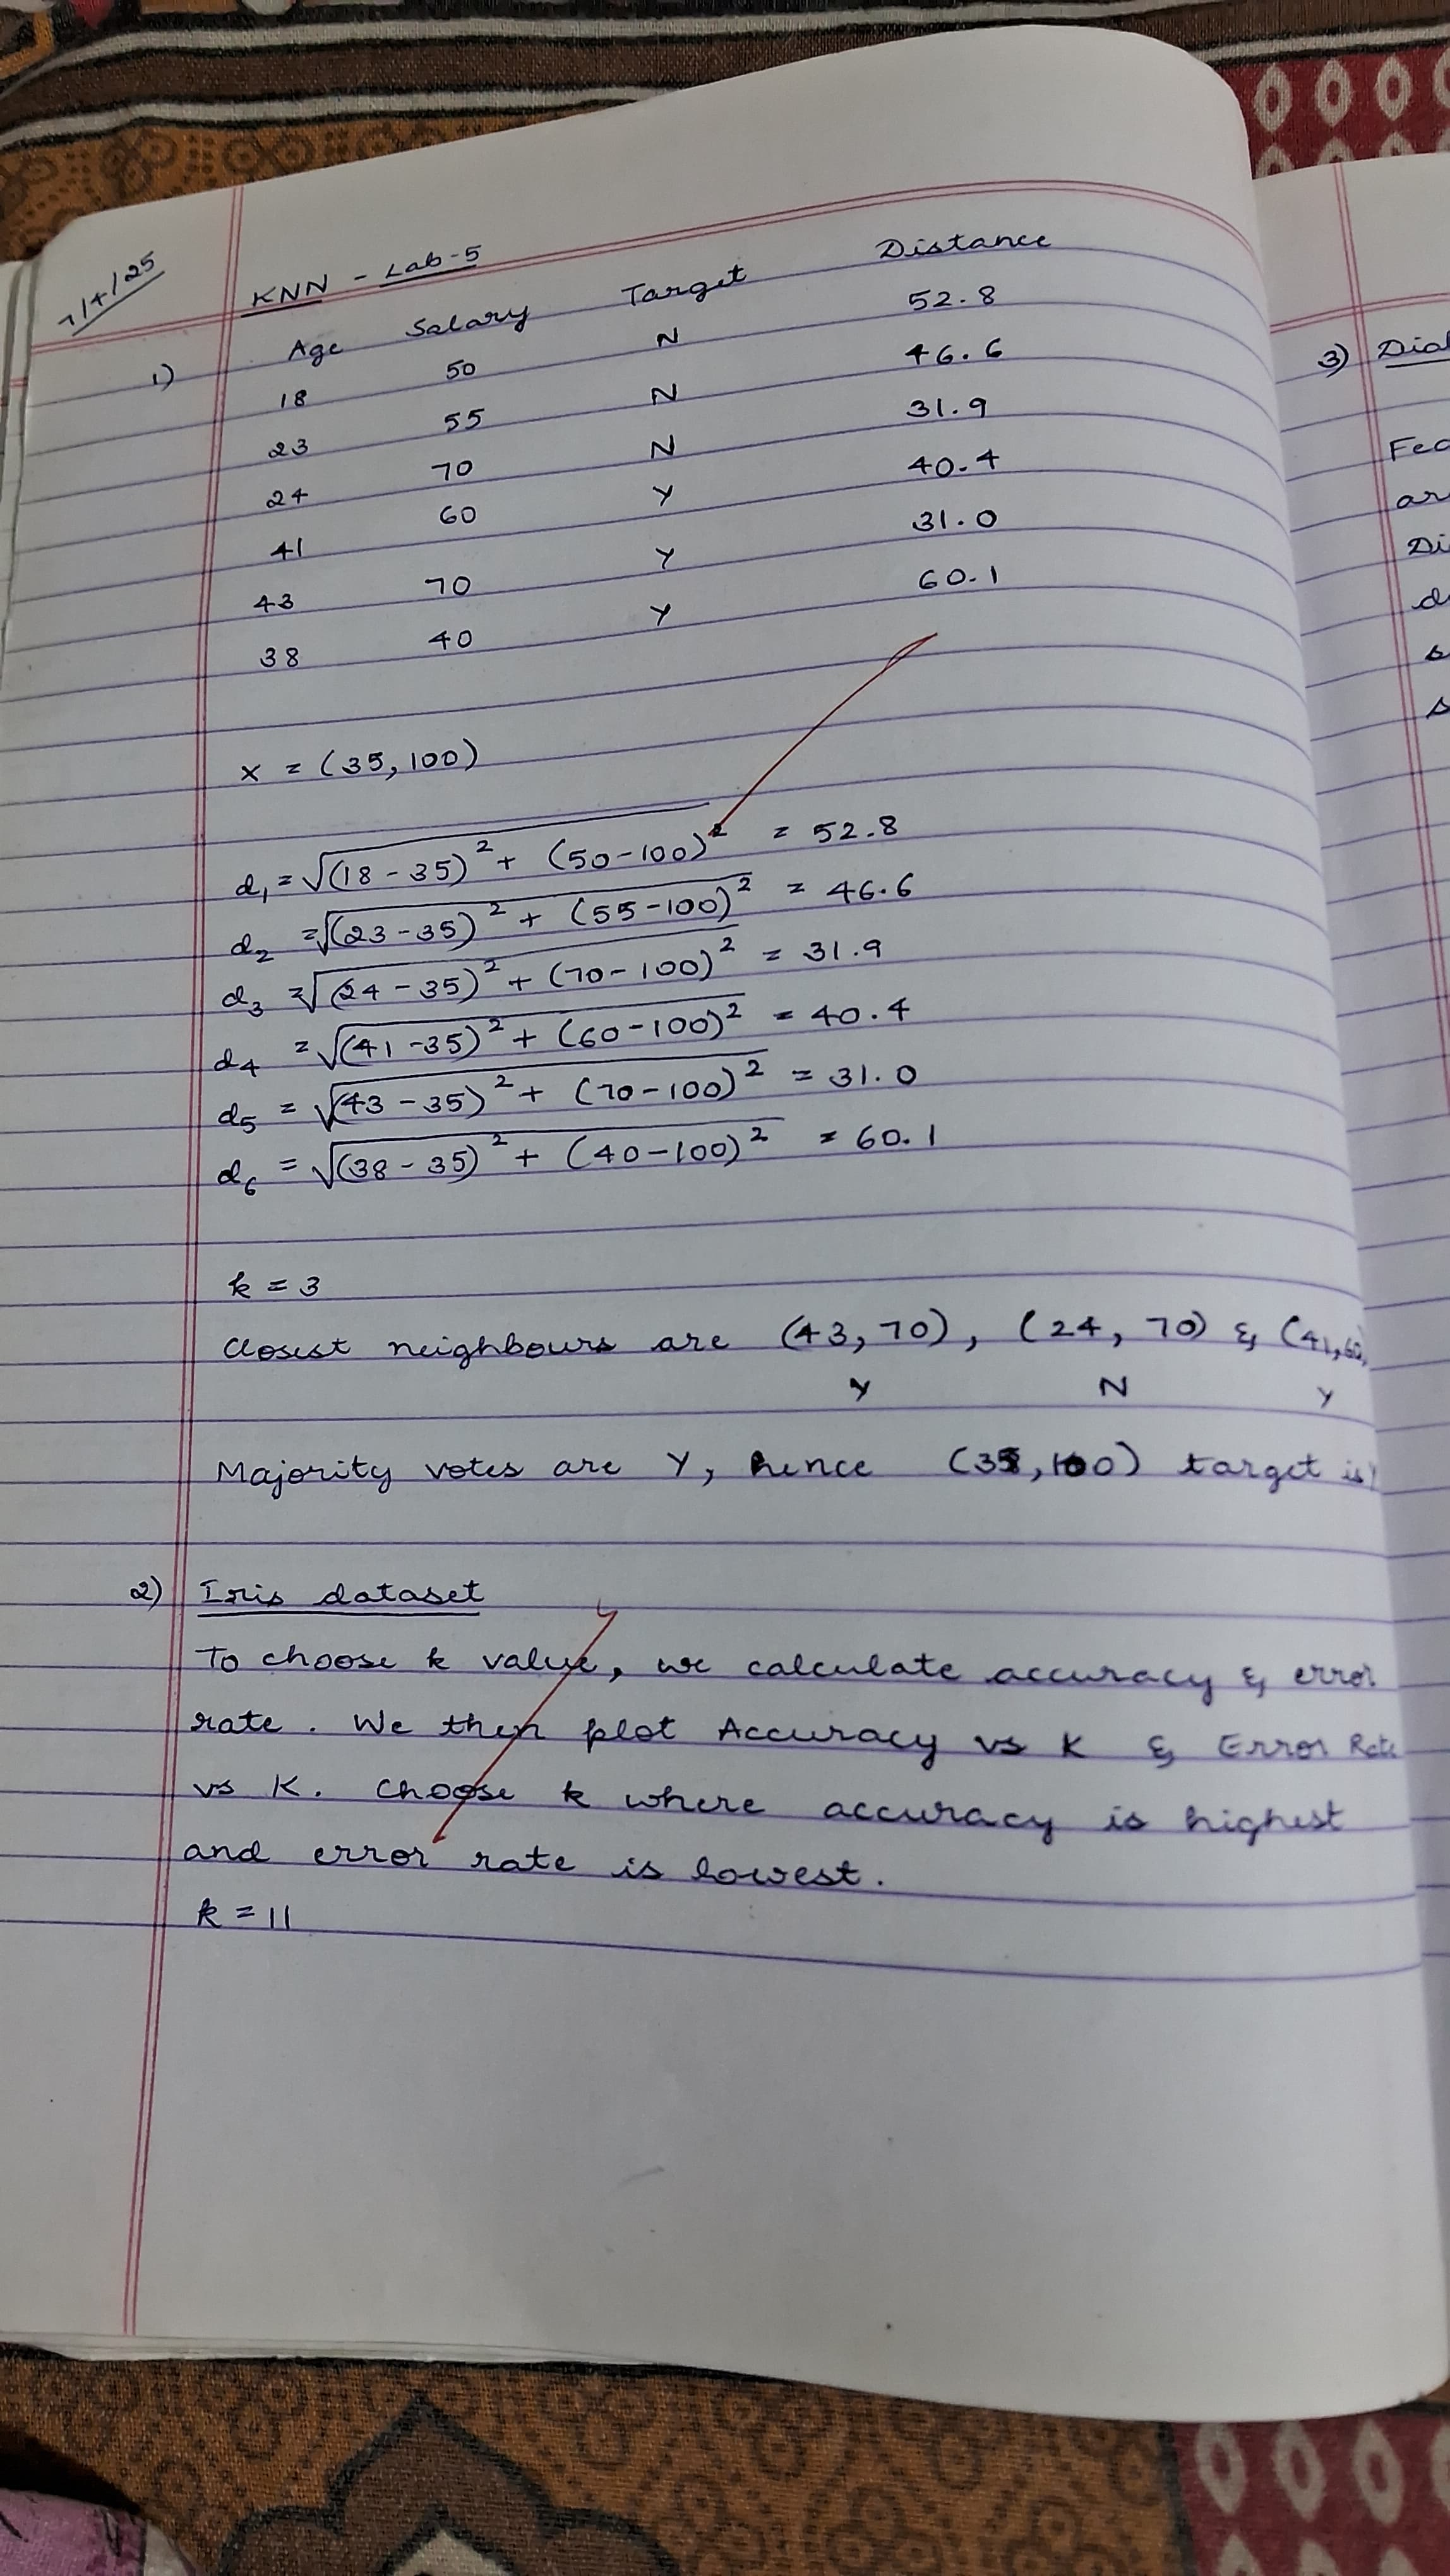 7/4/25
KNN - Lab-5
1) Age Salary Target Distance
18 50 N 52.8
23 55 N 46.6
24 70 N 31.9
41 60 Y 40.4
43 70 Y 31.0
38 40 Y 60.1
x = (35, 100)
d₁ = √(18 - 35)² + (50 - 100)² = 52.8
d₂ = √(23 - 35)² + (55 - 100)² = 46.6
d₃ = √(24 - 35)² + (70 - 100)² = 31.9
d₄ = √(41 - 35)² + (60 - 100)² = 40.4
d₅ = √(43 - 35)² + (70 - 100)² = 31.0
d₆ = √(38 - 35)² + (40 - 100)² = 60.1
k = 3
Closest neighbours are (43, 70), (24, 70) & (41, 60)
Y N Y
Majority votes are Y, hence (35, 100) target is Y
2) Iris dataset
To choose k value, we calculate accuracy & error
rate. We then plot Accuracy vs K & Error Rate
vs K. Choose k where accuracy is highest
and error rate is lowest.
k = 11
3)